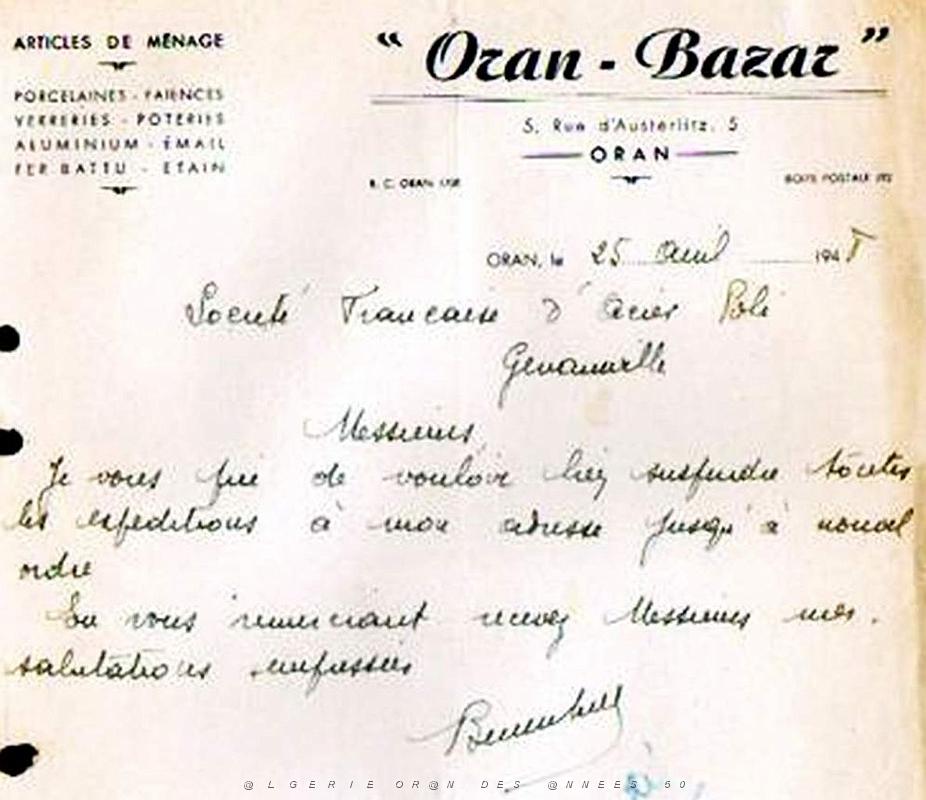 ARTICLES DE MÉNAGE
PORCELAINES - FAIENCES
VERRERIES - POTERIES
ALUMINIUM - ÉMAIL
FER BATTU - ETAIN
“ Oran - Bazar ”
5, Rue d'Austerlitz, 5
ORAN
R. C. ORAN
BOITE POSTALE
ORAN, le 25 Avril 194
Societé Francaise d' Acier Poli
Messieurs,
Je vous prie de vouloir bien suspendre toutes
les expeditions à mon adresse jusqu'à nouvel
ordre
En vous remerciant recevez Messieurs mes
salutations empressées
@LGERIE OR@N DES @NNEES 50